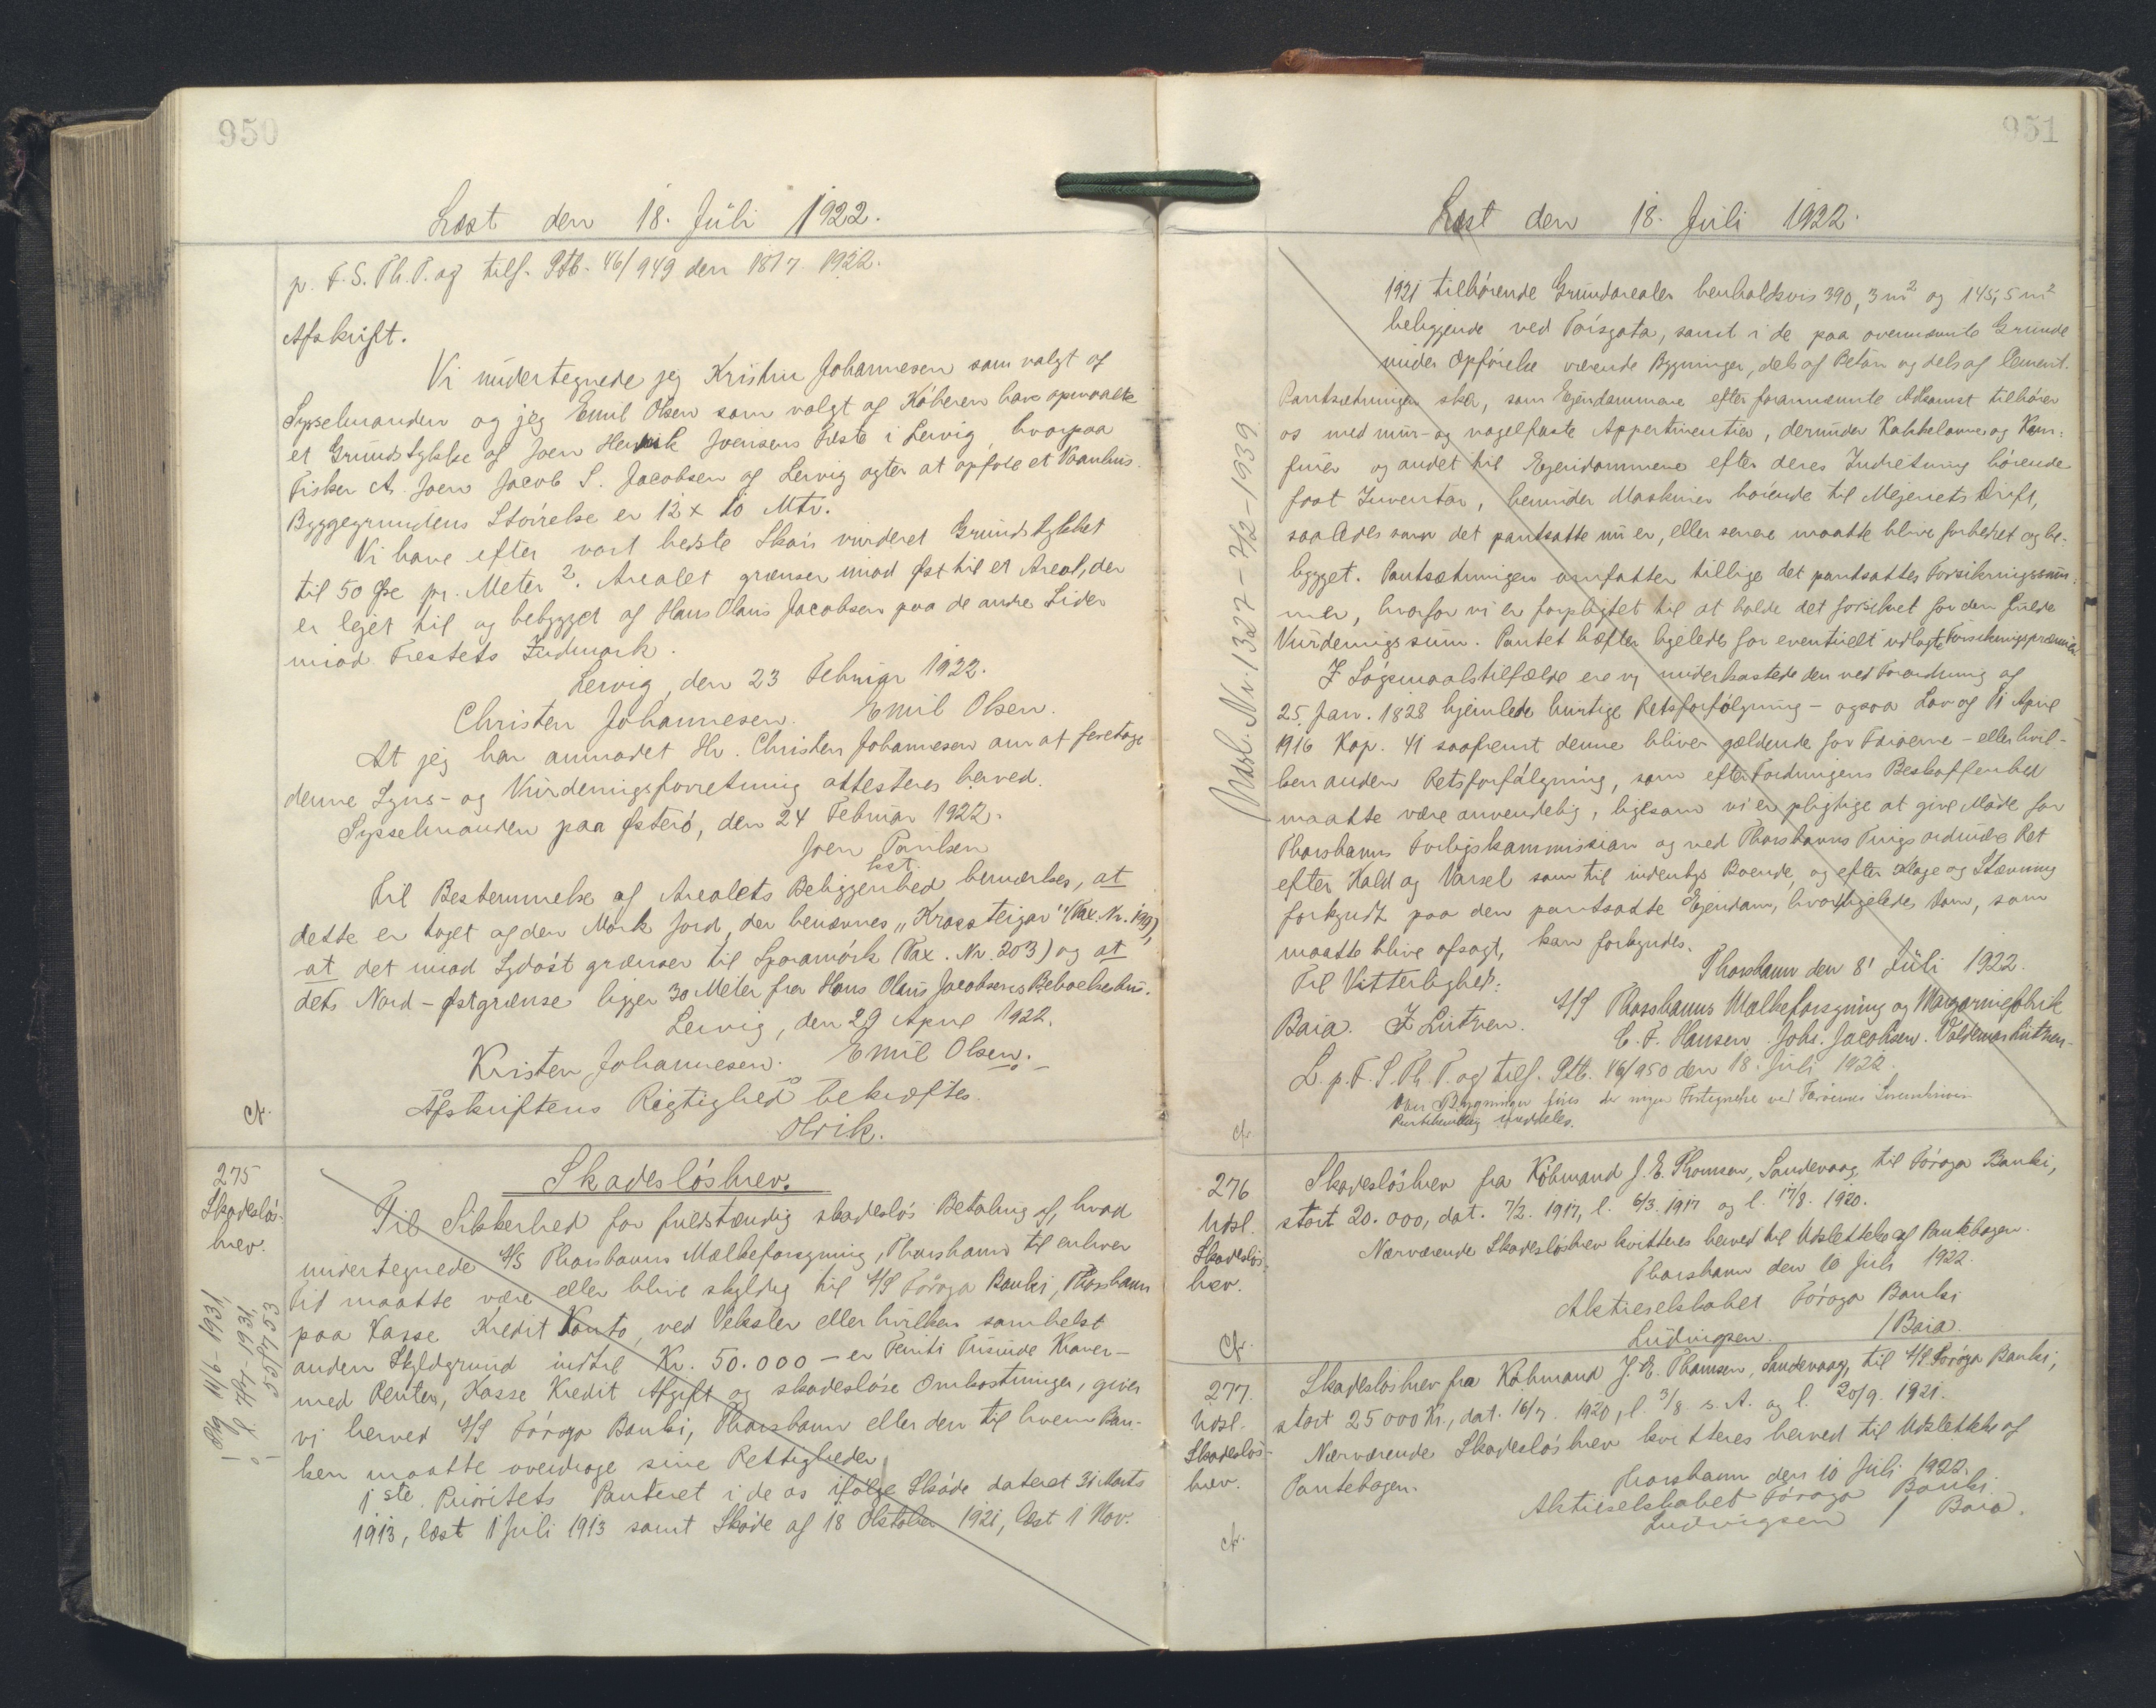 950
Læst den 18. Juli 1922.
p. F. S. Th. T. og tilf. Ptb. 46/949 den 18/7 1922.
Afskrift.
Vi undertegnede jeg Kristen Johannesen som valgt af
Sysselmanden og jeg Emil Olsen som valgt af Köberen have opmaalte
et Grundstykke af Joen Henrik Joensens Fæste i Lervig, hvorpaa
Fisker Joen Jacob S. Jacobsen af Lervig agter at opföre et Vaanhus.
Byggegrundens Störrelse er 12 x 10 Mtr.
Vi have efter vort bedste Skön vurderet Grundstykket
til 50 Øre pr. Meter ². Arealet grænser mod Øst til et Areal, der
er leget til og bebygget af Hans Olaus Jacobsen paa de andre Sider
mod Fæstets Indmark.
Lervig, den 23 Februar 1922.
Christen Johannesen. Emil Olsen.
At jeg har anmodet Hr. Christen Johannesen om at foretage
denne Syns- og Vurderingsforretning attesteres herved.
Sysselmanden paa Østerö, den 24 Februar 1922.
Joen Poulsen
kst.
Til Bestemmelse af Arealets Beliggenhed bemærkes, at
dette er taget af den Mark Jord, der benævnes "Krossteigar" (Tax. Nr. 199),
at det mod Sydöst grænser til Sporamörk (Tax. Nr. 203) og at
dets Nord-Østgrænse ligger 30 Meter fra Hans Olaus Jacobsens Beboelseshus.
Lervig, den 29 April 1922.
Kristen Johannesen. Emil Olsen.
Afskriftens Rigtighed bekræftes.
Olrik.
Cfr.
275
Skadeslös-
brev.
Skadeslösbrev.
Til Sikkerhed for fuldstændig skadeslös Betaling af, hvad
undertegnede A/S Thorshavns Mælkeforsyning, Thorshavn til enhver
tid maatte være eller blive skyldig til A/S Föroya Banki, Thorshavn
paa Kasse Kredit Konto, ved Veksler eller hvilken somhelst
anden Skyldgrund indtil Kr. 50.000 - er Femti Tusinde Kroner -
med Renter, Kasse Kredit Afgift og skadeslöse Omkostninger, giver
vi herved A/S Föroya Banki, Thorshavn eller den til hvem Ban-
ken maatte overdrage sine Rettigheder
1ste Prioritets Panteret i de os ifölge Sköde dateret 31 Marts
1913, læst 1 Juli 1913 samt Sköde af 18 Oktober 1921, læst 1 Nov.
951
Læst den 18. Juli 1922.
1921 tilhörende Grundarealer henholdsvis 390,3 m² og 145,5 m²
beliggende ved Tórsgata, samt i de paa ovennævnte Grunde
under Opförelse værende Bygninger, dels af Beton og dels af Cement.
Pantsætningen sker, som Ejendommene efter forannævnte Adkomst tilhörer
os med mur- og nagelfaste Appertinentier, derunder Kakkelovne og Kom-
furer og andet til Ejendommene efter deres Indretning hörende
fast Inventar, herunder Maskiner hörende til Mejeriets Drift,
saaledes som det pantsatte nu er, eller senere maatte blive forbedret og be-
bygget. Pantsætningen omfatter tillige det pantsattes Forsikringssum-
mer, hvorfor vi er forpligtet til at holde det forsikret for den fulde
Vurderingssum. Pantet hæfter ligeledes for eventuelt udlagte Forsikringspræmier.
I Lögsmaalstilfælde ere vi underkastede den ved Forordning af
25. Jan. 1828 hjemlede hurtige Retsforfölgning - ogsaa Lov af 11 April
1916 Kap. 41 saafremt denne bliver gældende for Færöerne - eller hvil-
ken anden Retsforfölgning, som efter Fordringens Beskaffenhed
maatte være anvendelig, ligesom vi er pligtige at give Möde for
Thorshavns Forligskommission og ved Thorshavns Tings ordinære Ret
efter Kald og Varsel som til indenbys Boende, og efter Klage og Stævning
forkyndt paa den pantsatte Ejendom, hvor ligeledes Dom, som
maatte blive afsagt, kan forkyndes.
Thorshavn den 8' Juli 1922.
Til Vitterlighed:
A/S Thorshavns Mælkeforsyning og Margarinefabrik
Baia. F Lützen. C. F. Hansen. Johs. Jacobsen. Valdemar Lützen.
L. p. F. S. Th. T. og tilf. Ptb. 46/950 den 18. Juli 1922.
Cfr.
Masl. Nr. 1327 - 7/2 - 1939
276
Udsl.
Skadeslös-
brev.
Skadeslösbrev fra Köbmand J. E. Thomsen, Sandevaag, til Föroya Banki,
stort 20.000, dat. 7/2. 1917, l. 6/3. 1917 og l. 17/8. 1920.
Nærværende Skadeslösbrev kvitteres herved til Udslettelse af Pantebogen.
Thorshavn den 10 Juli 1922.
Aktieselskabet Föroya Banki
Ludvigsen. / Baia.
Cfr.
277.
Udsl.
Skadeslös-
brev.
Skadeslösbrev fra Köbmand J. E. Thomsen, Sandevaag, til A/S Föroya Banki,
stort 25000 Kr., dat. 16/7. 1920, l. 3/8. s. A. og l. 20/9. 1921.
Nærværende Skadeslösbrev kvitteres herved til Udslettelse af
Pantebogen.
Thorshavn den 10 Juli 1922.
Aktieselskabet Föroya Banki
Ludvigsen / Baia.
Cfr.